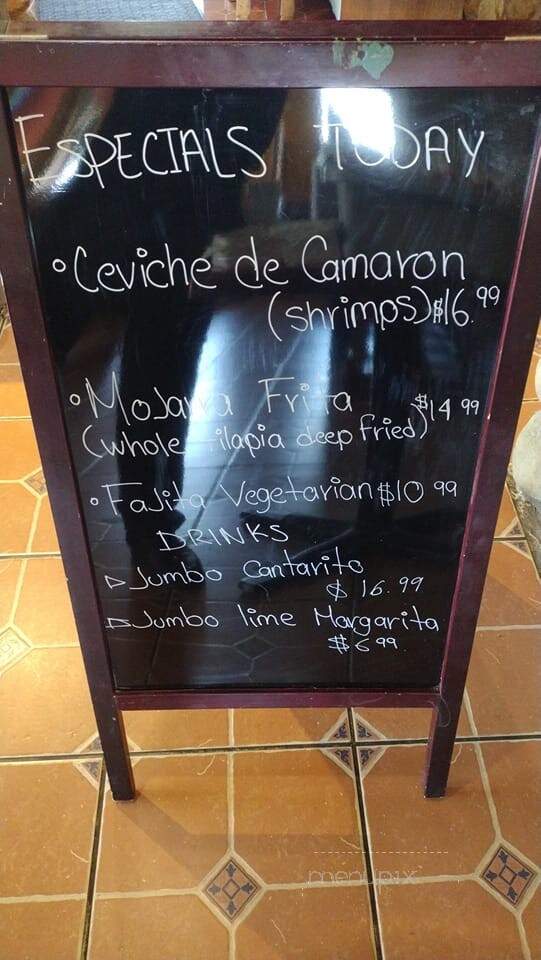 ESPECIALS TODAY
• Ceviche de Camaron
(shrimps) $16.99
• Mojarra Frita $14 99
(whole tilapia deep fried)
• Fajita Vegetarian $10 99
DRINKS
▷ Jumbo Cantarito
$ 16.99
▷ Jumbo lime Margarita
$6 99.
menupix